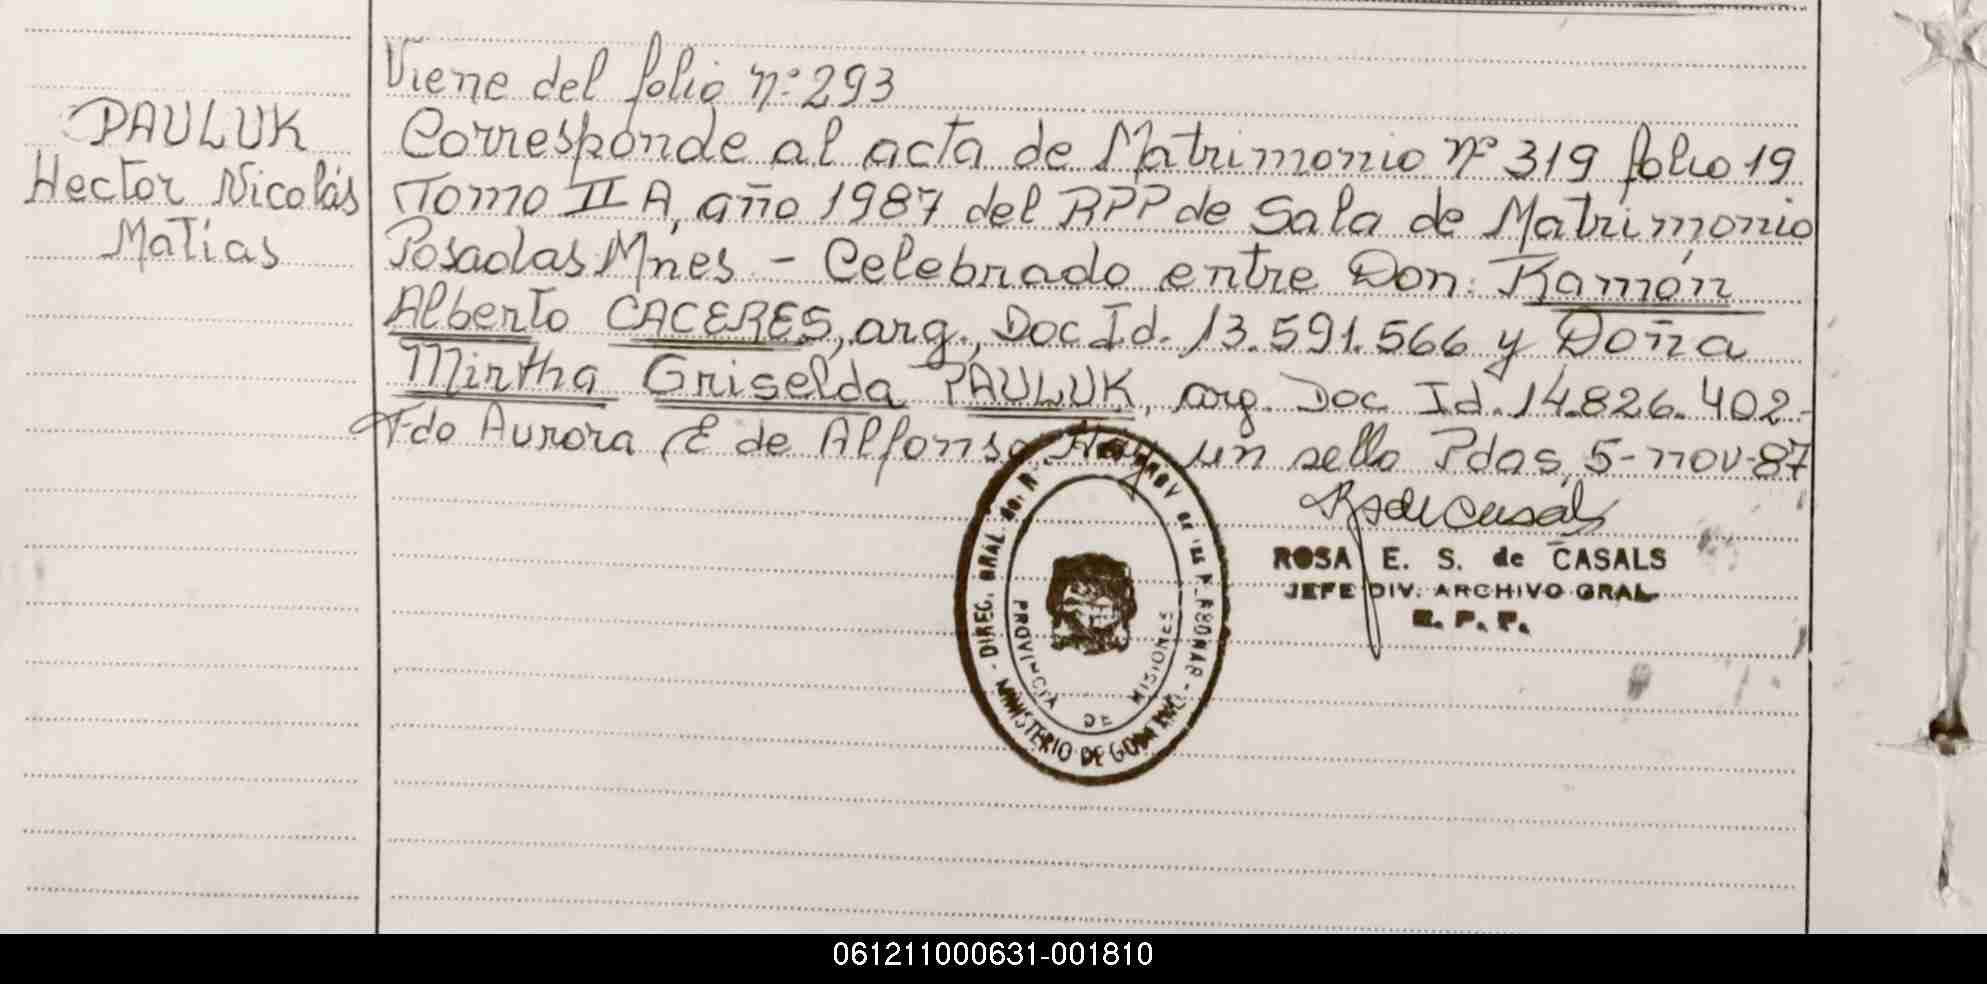 Viene del folio nº 293
PAULUK
Hector Nicolás
Matías
Corresponde al acta de Matrimonio nº 319 folio 19
Tomo II A, año 1987 del RPP de Sala de Matrimonio
Posadas Mnes - Celebrado entre Don: Ramón
Alberto CACERES, arg., Doc Id. 13.591.566 y Doña
Mirtha Griselda PAULUK, arg. Doc Id. 14.826.402.-
Fdo Aurora E de Alfonso Hay un sello Pdas, 5-nov-87
ROSA E. S. de CASALS
JEFE DIV. ARCHIVO GRAL
R. P. P.
DIREC. GRAL. DEL
PROVINCIA DE MISIONES
MINISTERIO DE GOBIERNO
061211000631-001810